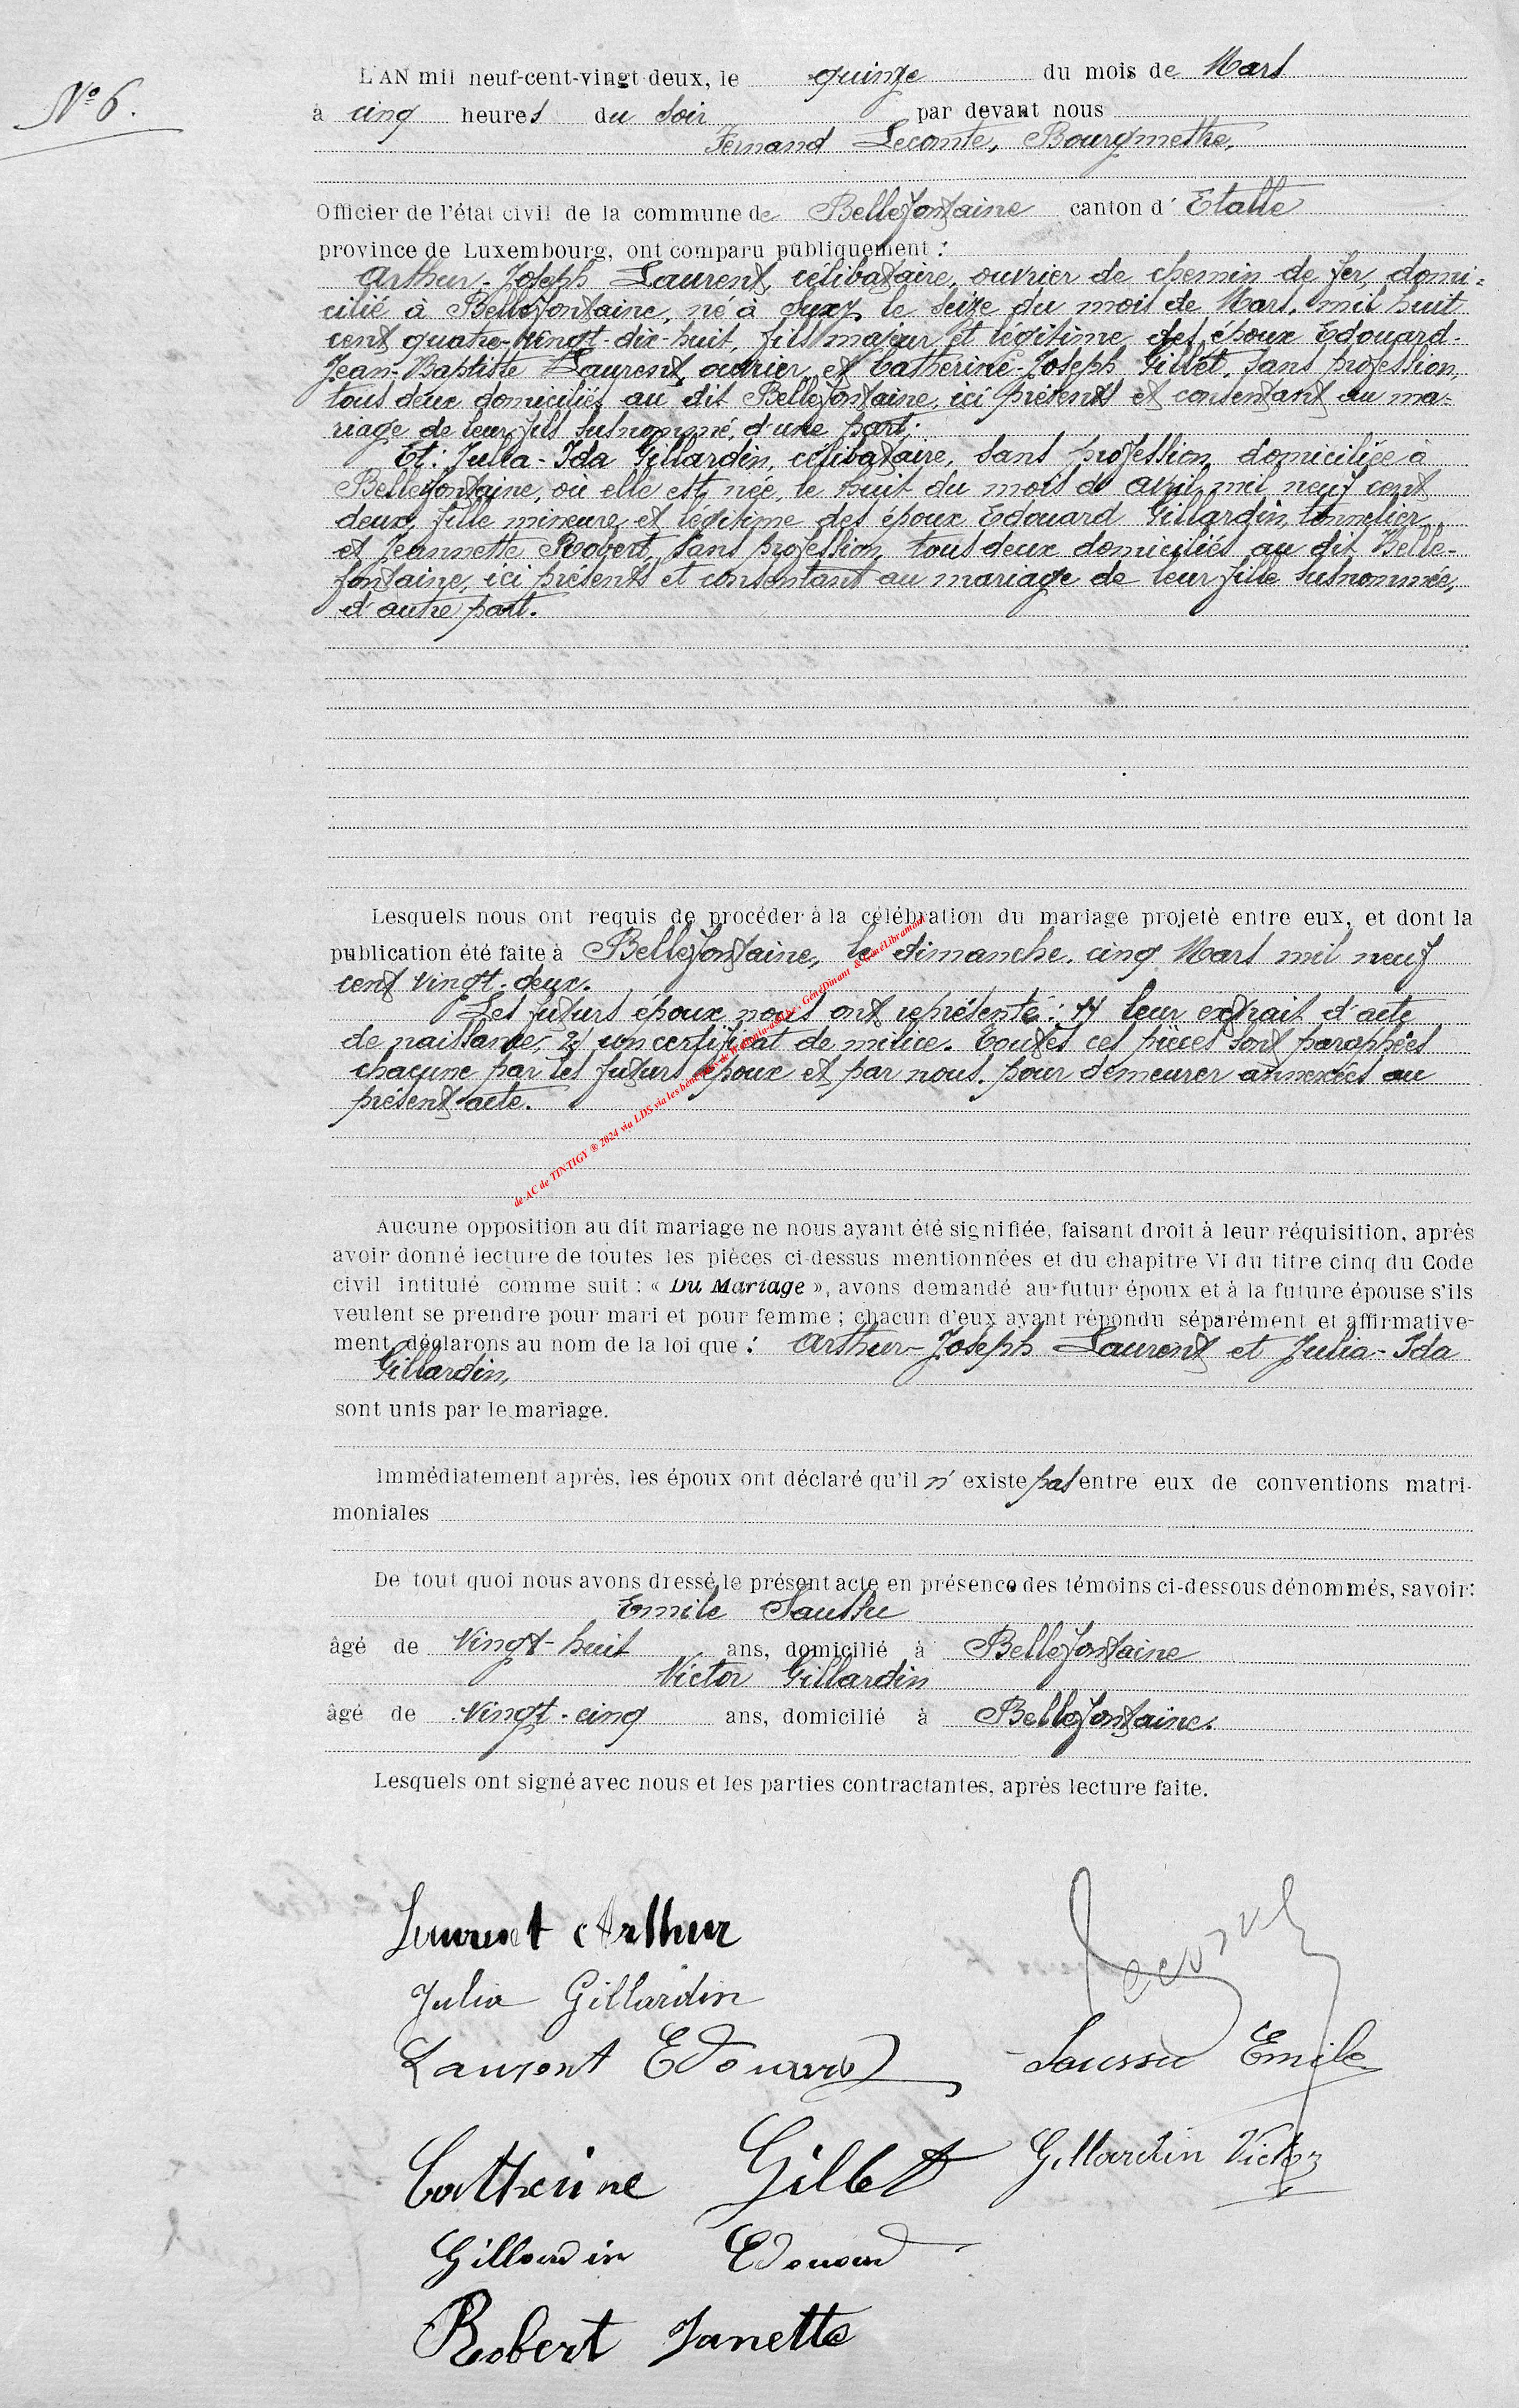 N° 6.
L'AN mil neuf-cent-vingt-deux, le quinze du mois de Mars
à cinq heures du soir par devant nous
Fernand Lecomte, Bourgmestre,
Officier de l'état civil de la commune de Bellefontaine canton d' Etalle
province de Luxembourg, ont comparu publiquement :
Arthur-Joseph Laurent, célibataire, ouvrier de chemin de fer, domi-
cilié à Bellefontaine, né à Suxy, le seize du mois de Mars, mil huit
cent quatre-vingt-dix-huit, fils majeur et légitime des époux Edouard-
Jean-Baptiste Laurent, ouvrier et Catherine-Joseph Gillet, sans profession,
tous deux domiciliés au dit Bellefontaine, ici présents et consentant au ma-
riage de leur fils susnommé, d'une part;
Et: Julia-Ida Gillardin, célibataire, sans profession, domiciliée à
Bellefontaine, où elle est née, le huit du mois d' avril mil neuf cent
deux, fille mineure et légitime des époux Edouard Gillardin, tonnelier,
et Jeannette Robert, sans profession, tous deux domiciliés au dit Belle-
fontaine, ici présents et consentant au mariage de leur fille susnommée,
d'autre part.
Lesquels nous ont requis de procéder à la célébration du mariage projeté entre eux, et dont la
publication été faite à Bellefontaine, le dimanche, cinq Mars mil neuf
cent vingt-deux.
Les futurs époux nous ont représenté: 1/ leur extrait d'acte
de naissance; 2/ un certificat de milice. Toutes ces pièces sont paraphées
chacune par les futurs époux et par nous, pour demeurer annexées au
présent acte.
de AC de TINTIGY ® 2024 via LDS via les bénévoles de GénéDinant & GénéLibramont
Aucune opposition au dit mariage ne nous ayant été signifiée, faisant droit à leur réquisition, après
avoir donné lecture de toutes les pièces ci-dessus mentionnées et du chapitre VI du titre cinq du Code
civil intitulé comme suit : « Du Mariage », avons demandé au futur époux et à la future épouse s'ils
veulent se prendre pour mari et pour femme ; chacun d'eux ayant répondu séparément et affirmative-
ment, déclarons au nom de la loi que : Arthur-Joseph Laurent et Julia-Ida
Gillardin,
sont unis par le mariage.
Immédiatement après, les époux ont déclaré qu'il n' existe pas entre eux de conventions matri-
moniales
De tout quoi nous avons dressé le présent acte en présence des témoins ci-dessous dénommés, savoir:
Emile Saussu
âgé de Vingt-huit ans, domicilié à Bellefontaine
Victor Gillardin
âgé de Vingt-cinq ans, domicilié à Bellefontaine.
Lesquels ont signé avec nous et les parties contractantes, après lecture faite.
Laurent Arthur
Julia Gillardin
Laurent Edouard Saussu Emile
Catherine Gillet Gillardin Victor
Gillardin Edouard
Robert Janette